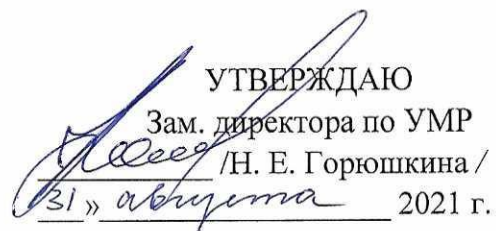 УТВЕРЖДАЮ
Зам. директора по УМР
/Н. Е. Горюшкина /
31 » августа 2021 г.